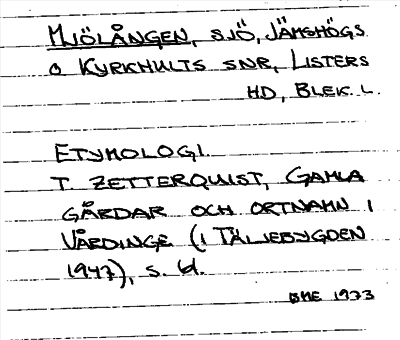 MJÖLÅNGEN, SJÖ, JÄMSHÖGS
O KYRKHULTS SNR, LISTERS
HD, BLEK. L.
ETYMOLOGI.
T. ZETTERQUIST, GAMLA
GÅRDAR OCH ORTNAMN I
VÅRDINGE (I TÄLJEBYGDEN
1947), S. 61.
1973